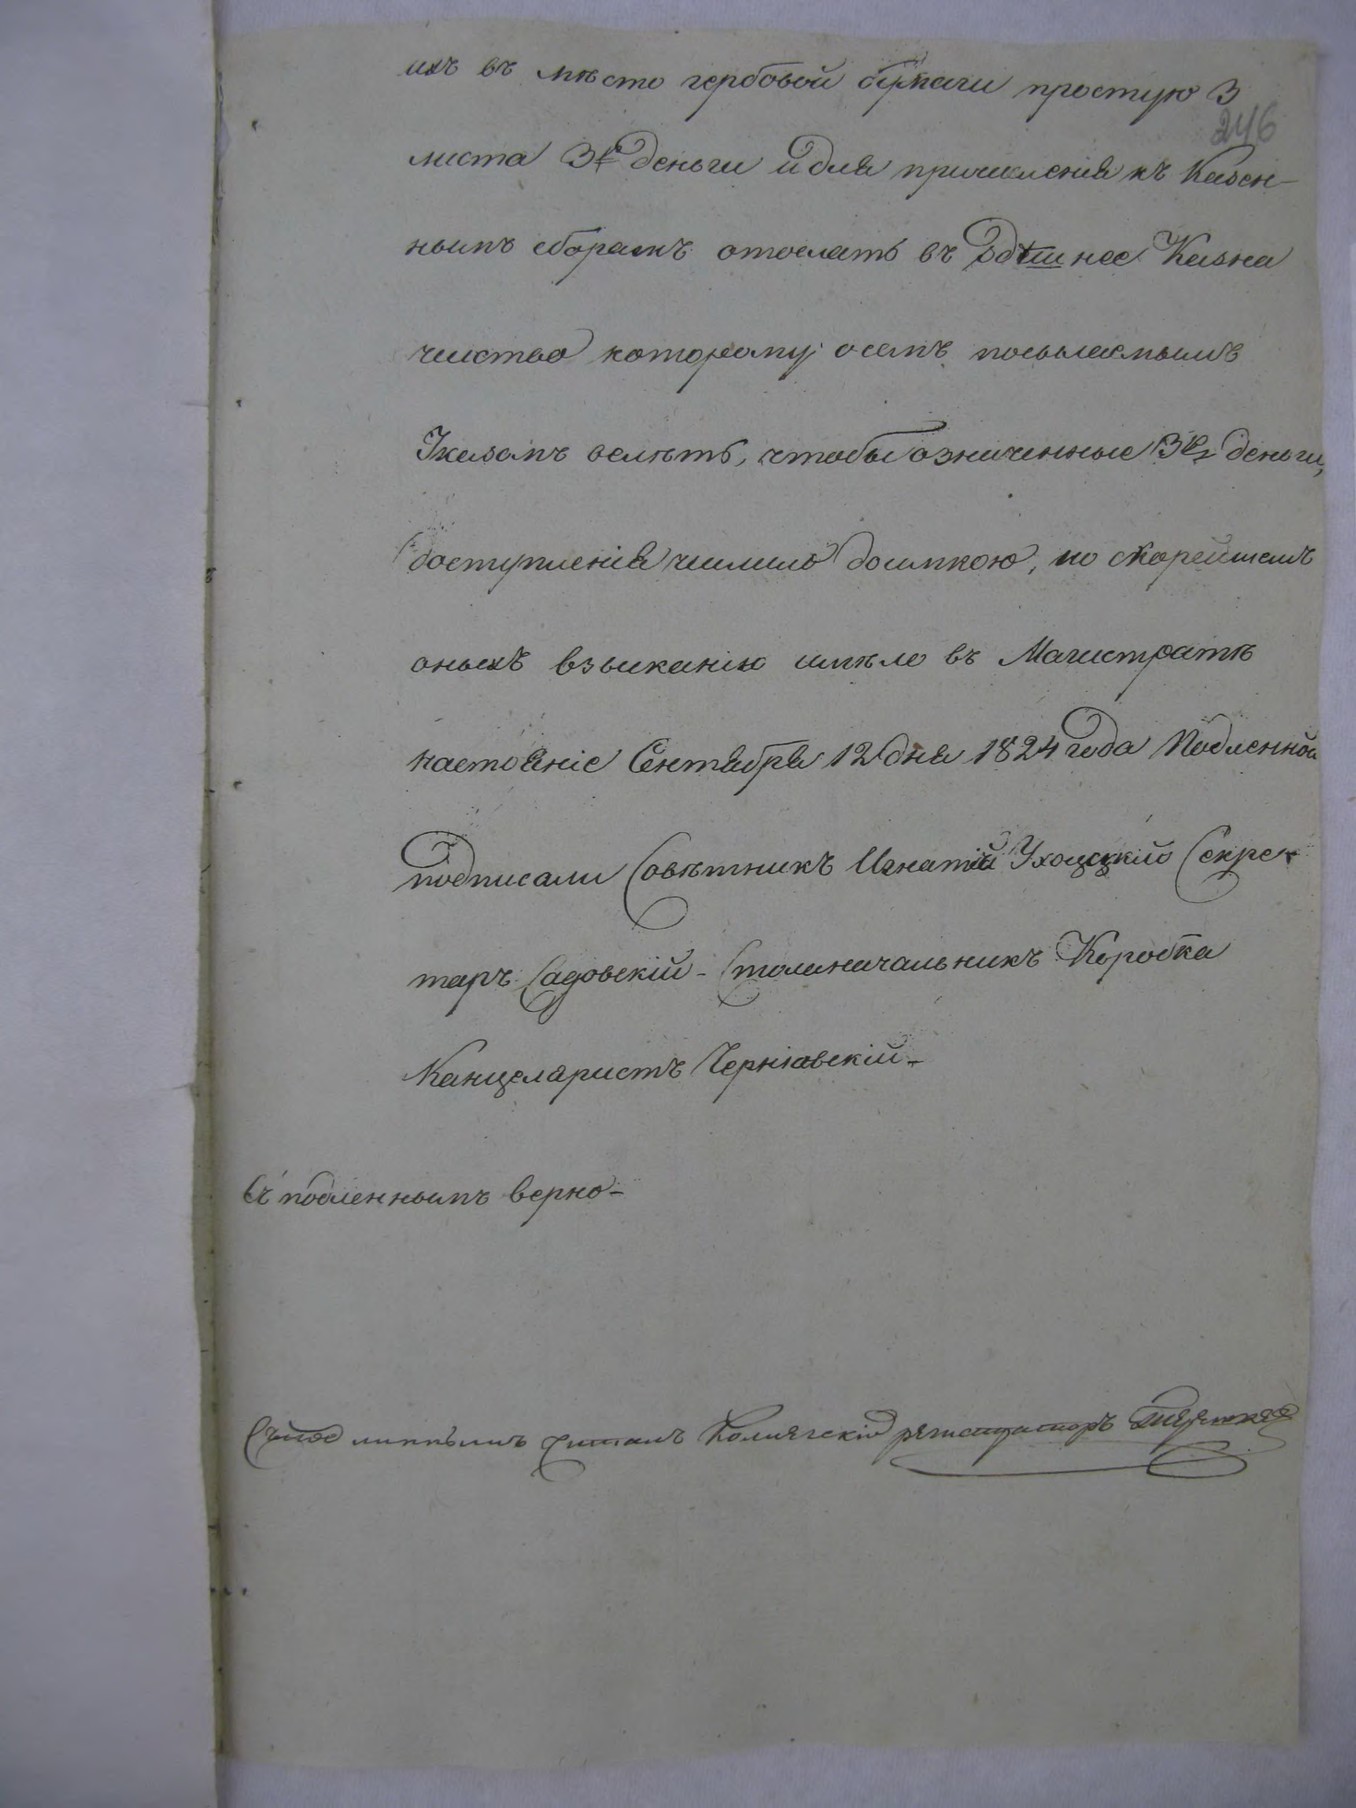 ихъ въ мѣсто гербовой бумаги простую 3
246
листа 3 р деньги и для причисленія къ Казен-
нымъ сборамъ отослать въ здѣшнее Казна
чиство которому о семъ посылаемымъ
Указомъ велѣть, чтобы означенные 3 р деньги,
до поступленія числило доимкою, по скорейшемъ
оныхъ взысканію имѣло въ Магистратѣ
настояніе Сентября 12 дня 1824 года Подленной
подписали Совѣтникъ Игнатій Ухоцкій Секре-
таръ Садовскій - Столоначальникъ Коробка
Канцеляристъ Чернявскій -
Съ подленнымъ верно -
Съ читалъ Колежскій регистраторъ